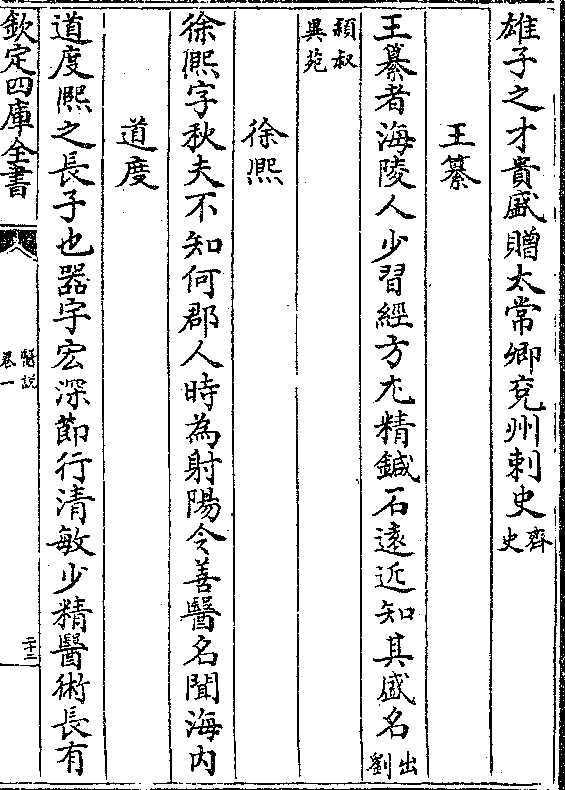 雄子之才貴盛贈太常卿兖州刺史齊史
王纂
王纂者海陵人少習經方尤精鍼石遠近知其盛名出劉
頴叔異苑
徐熈
徐熈字秋夫不知何郡人時為射陽令善醫名聞海内
道度
道度熈之長子也器宇宏深節行清敏少精醫術長有
欽定四庫全書
醫説
卷一
二十二